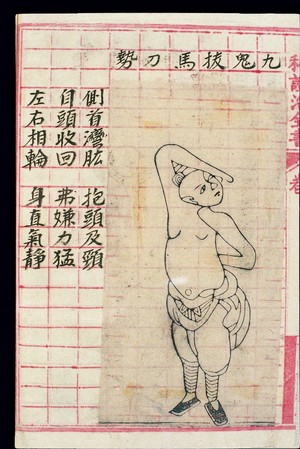 九鬼拔馬刀勢
側首灣肱 抱頭及頸
自頭收回 弗嫌力猛
左右相輪 身直氣靜